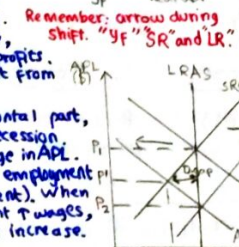 Remember: arrow during
shift. "YF" "SR" and "LR".
profits.
t from
ntal part,
cession
ge in APL.
employment
ent). When
nt ↑ wages,
increase.
APL
LRAS
SR
P₁
P'
P₂